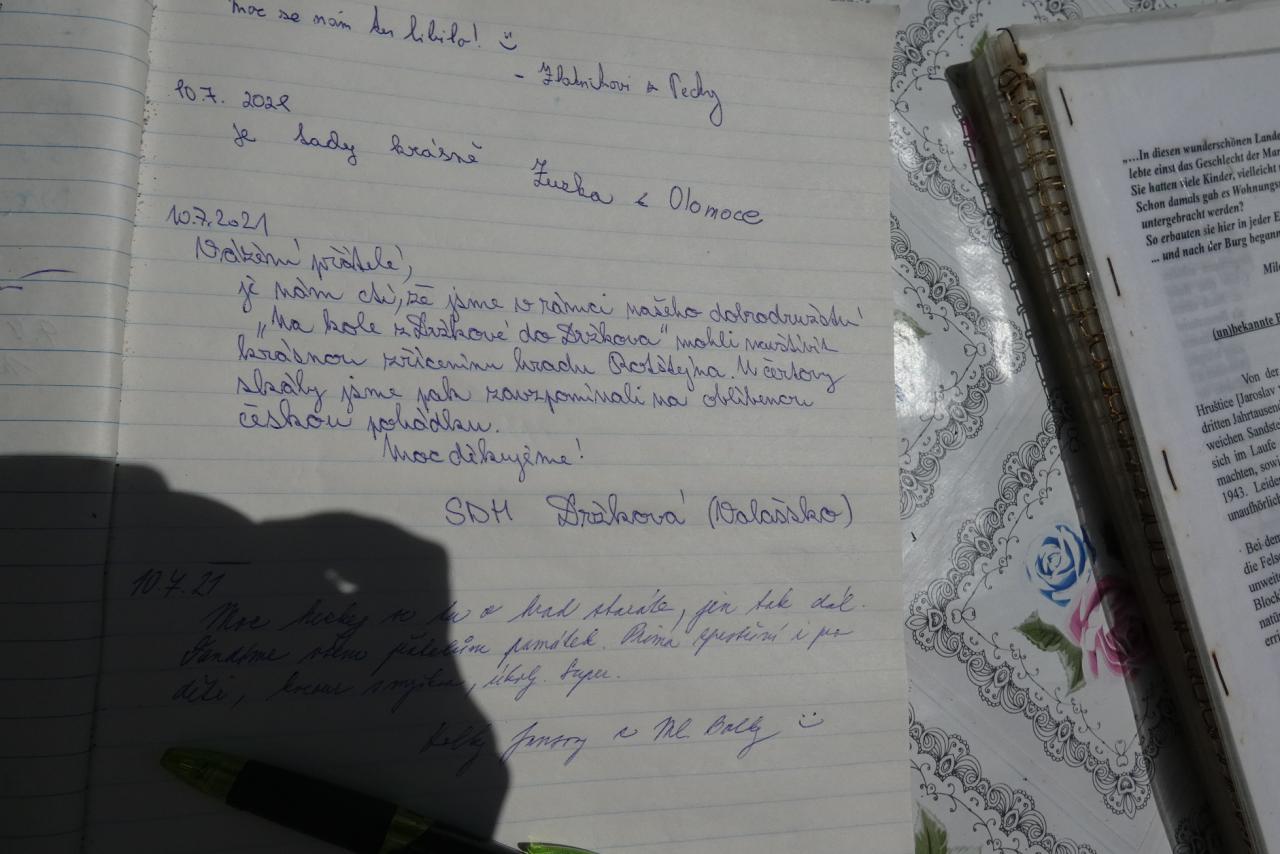 Moc se nám tu líbilo! :)
- Zlatníkovi z Pechy
10.7. 2021
je tady krásně
Zuzka z Olomoce
10.7.2021
Vážení přátelé,
je nám ctí, že jsme v rámci našeho dobrodružství
„Na kole z Držkové do Držkova“ mohli navštívit
krásnou zříceninu hradu Rotštejna. U čertovy
skály jsme pak zavzpomínali na oblíbenou
českou pohádku.
Moc děkujeme!
SDH Držková (Valašsko)
10.7.21
Moc hezky se tu o hrad staráte, jen tak dál.
Fandíme všem přátelům památek. Prima zpestření i pro
děti, úkoly. Super.
z Ml Bol :)
„...In diesen wunderschönen Lande
lebte einst das Geschlecht der Mar
Sie hatten viele Kinder, vielleicht
Schon damals gab es Wohnungs
untergebracht werden?
So erbauten sie hier in jeder E
... und nach der Burg begann
Mil
(un)bekannte
Von der
Hruštice [Jaroslav
dritten Jahrtausend
weichen Sandste
sich im Laufe
machten, sowi
1943. Leider
unaufhörlich
Bei dem
die Felse
unweit
Block
natü
erri